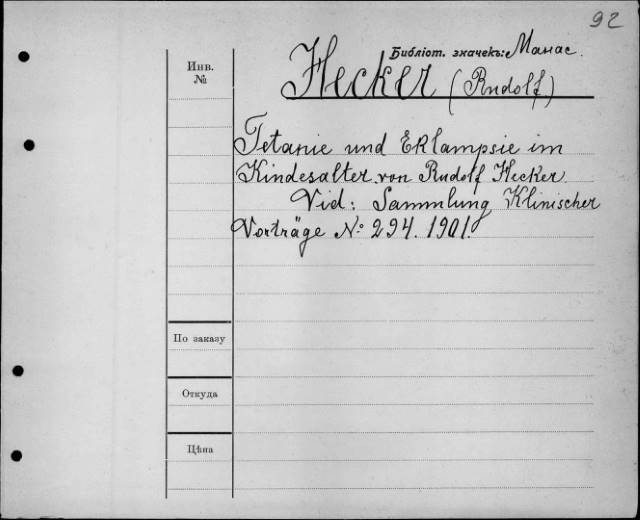 92
Библіот. значекъ: Манас.
Инв.
№
Hecker (Rudolf)
Tetanie und Eklampsie im
Kindesalter von Rudolf Hecker.
Vid: Sammlung Klinischer
Vorträge No 294. 1901.
По заказу
Откуда
Цѣна